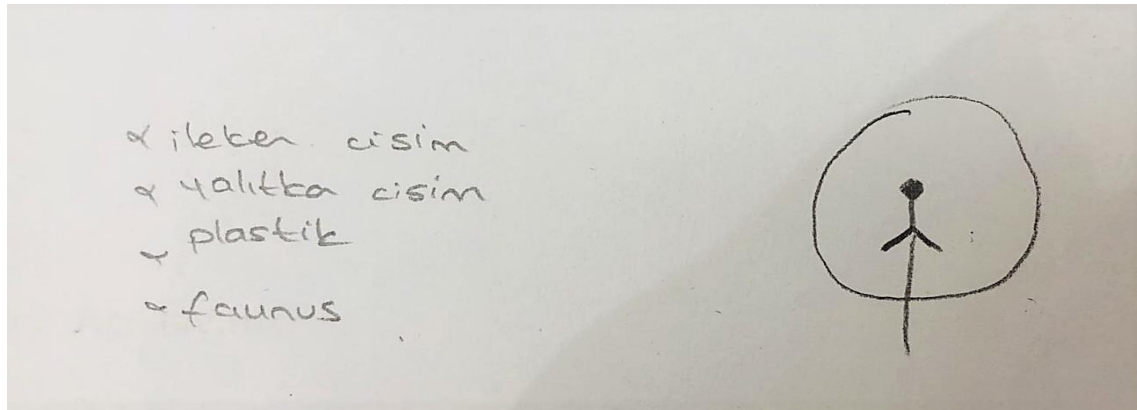 iletken cisim
yalıtka cisim
plastik
faunus